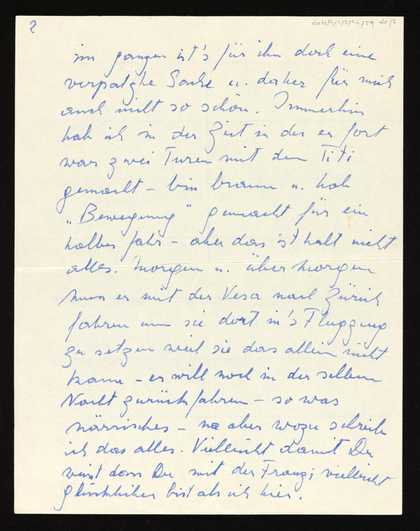 2
im ganzen ist's für ihn doch eine
verpatzte Sache u. daher für mich
auch nicht so schön. Immerhin
hab ich in der Zeit in der er fort
war zwei Turen mit dem Titi
gemacht – bin braun u. hab
„Bewegung" gemacht für ein
halbes Jahr – aber das ist halt nicht
alles. Morgen u. übermorgen
muss er mit der Vesa nach Zürich
fahren um sie dort in's Flugzeug
zu setzen weil sie das allein nicht
kann – er will noch in der selben
Nacht zurückfahren – so was
närrisches – na aber wozu schreib
ich das alles. Vielleicht damit Du
weist dass Du mit der Franzi vielleicht
glücklicher bist als ich hier.